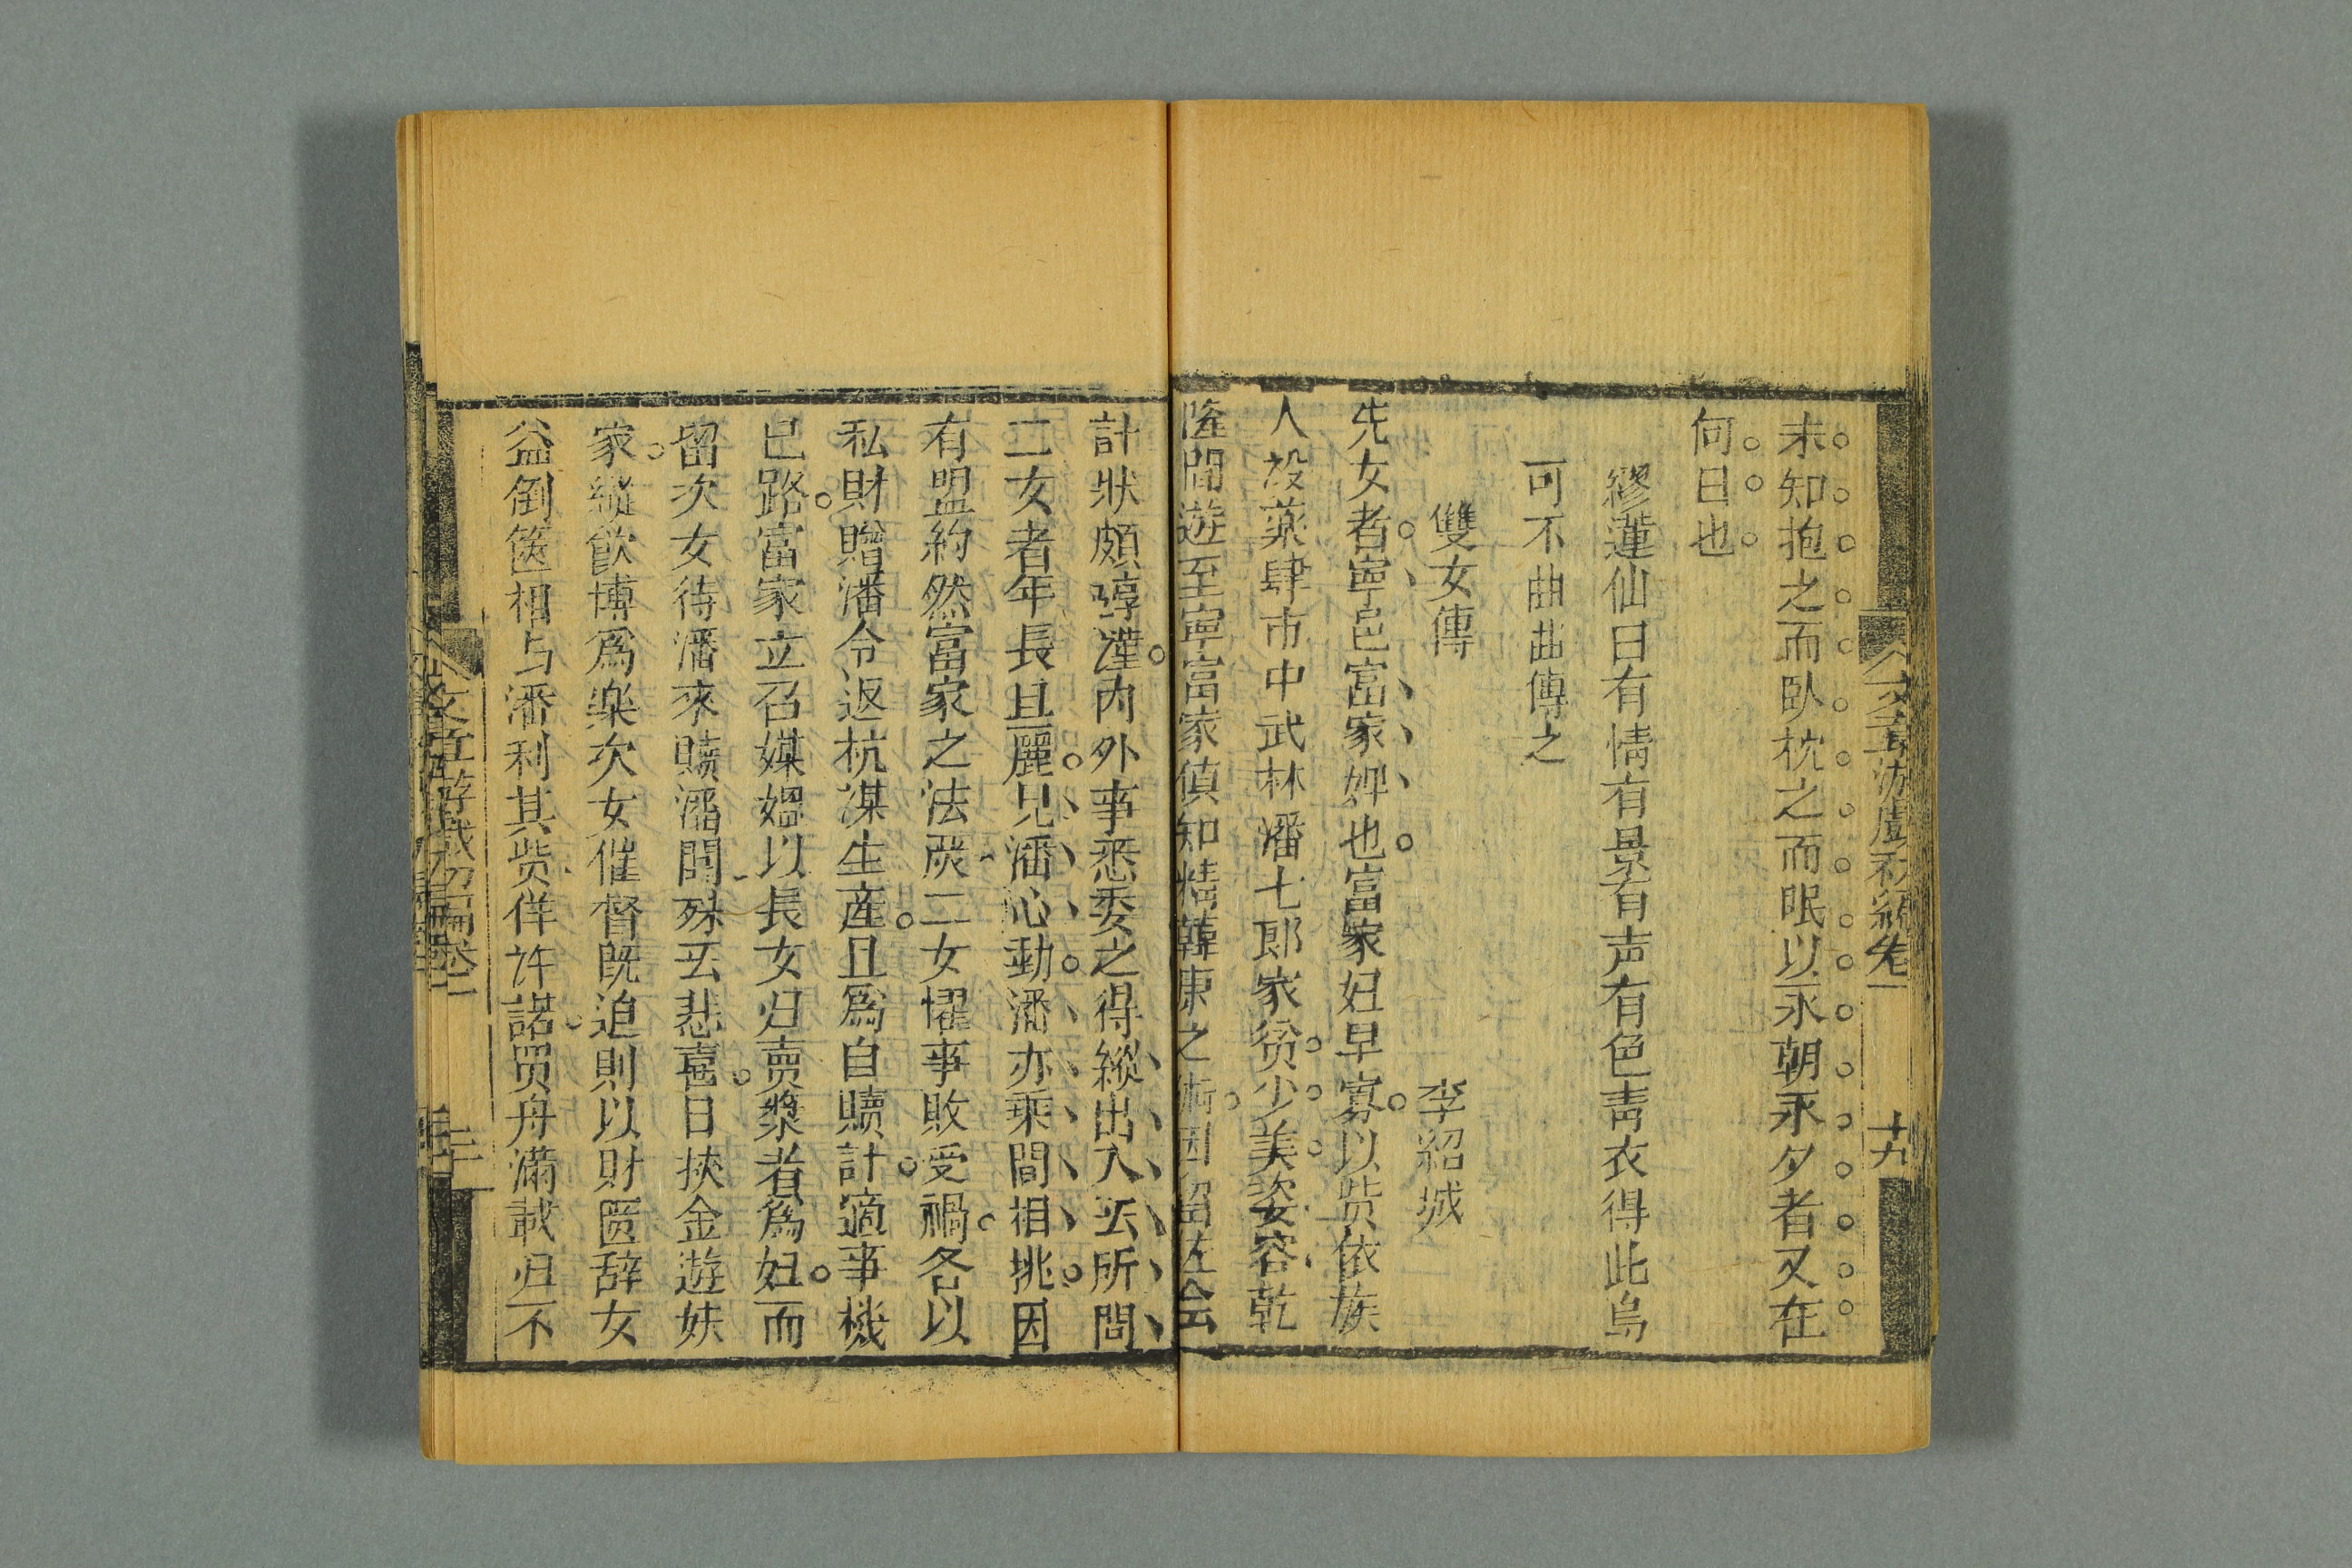 未知抱之而臥枕之而眠以永朝永夕者又在
何日也
繆蓮仙曰有情有景有声有色青衣得此烏
可不曲曲傳之
雙女傳
李紹城
先女者寧邑富家婢也富家妇早寡以赀依族
人設藥肆市中武林潘七郎家贫少美姿容乾
隆間遊至寧富家偵知精韓康之術因留佐会
計狀頗諄謹内外事悉委之得縱出入云所問
二女者年長且麗見潘心動潘亦乘間相挑因
有盟約然富家之法嚴二女懼事敗受禍各以
私財贈潘令返杭谋生産且為自贖計適事機
已路富家立召媒媼以長女归卖漿者為妇而
留次女待潘來贖潘聞殊云悲喜日挾金遊妓
家縱飲博為樂次女催督既迫則以財匮辞女
益倒篋相与潘利其赀佯许諾買舟滿載归不